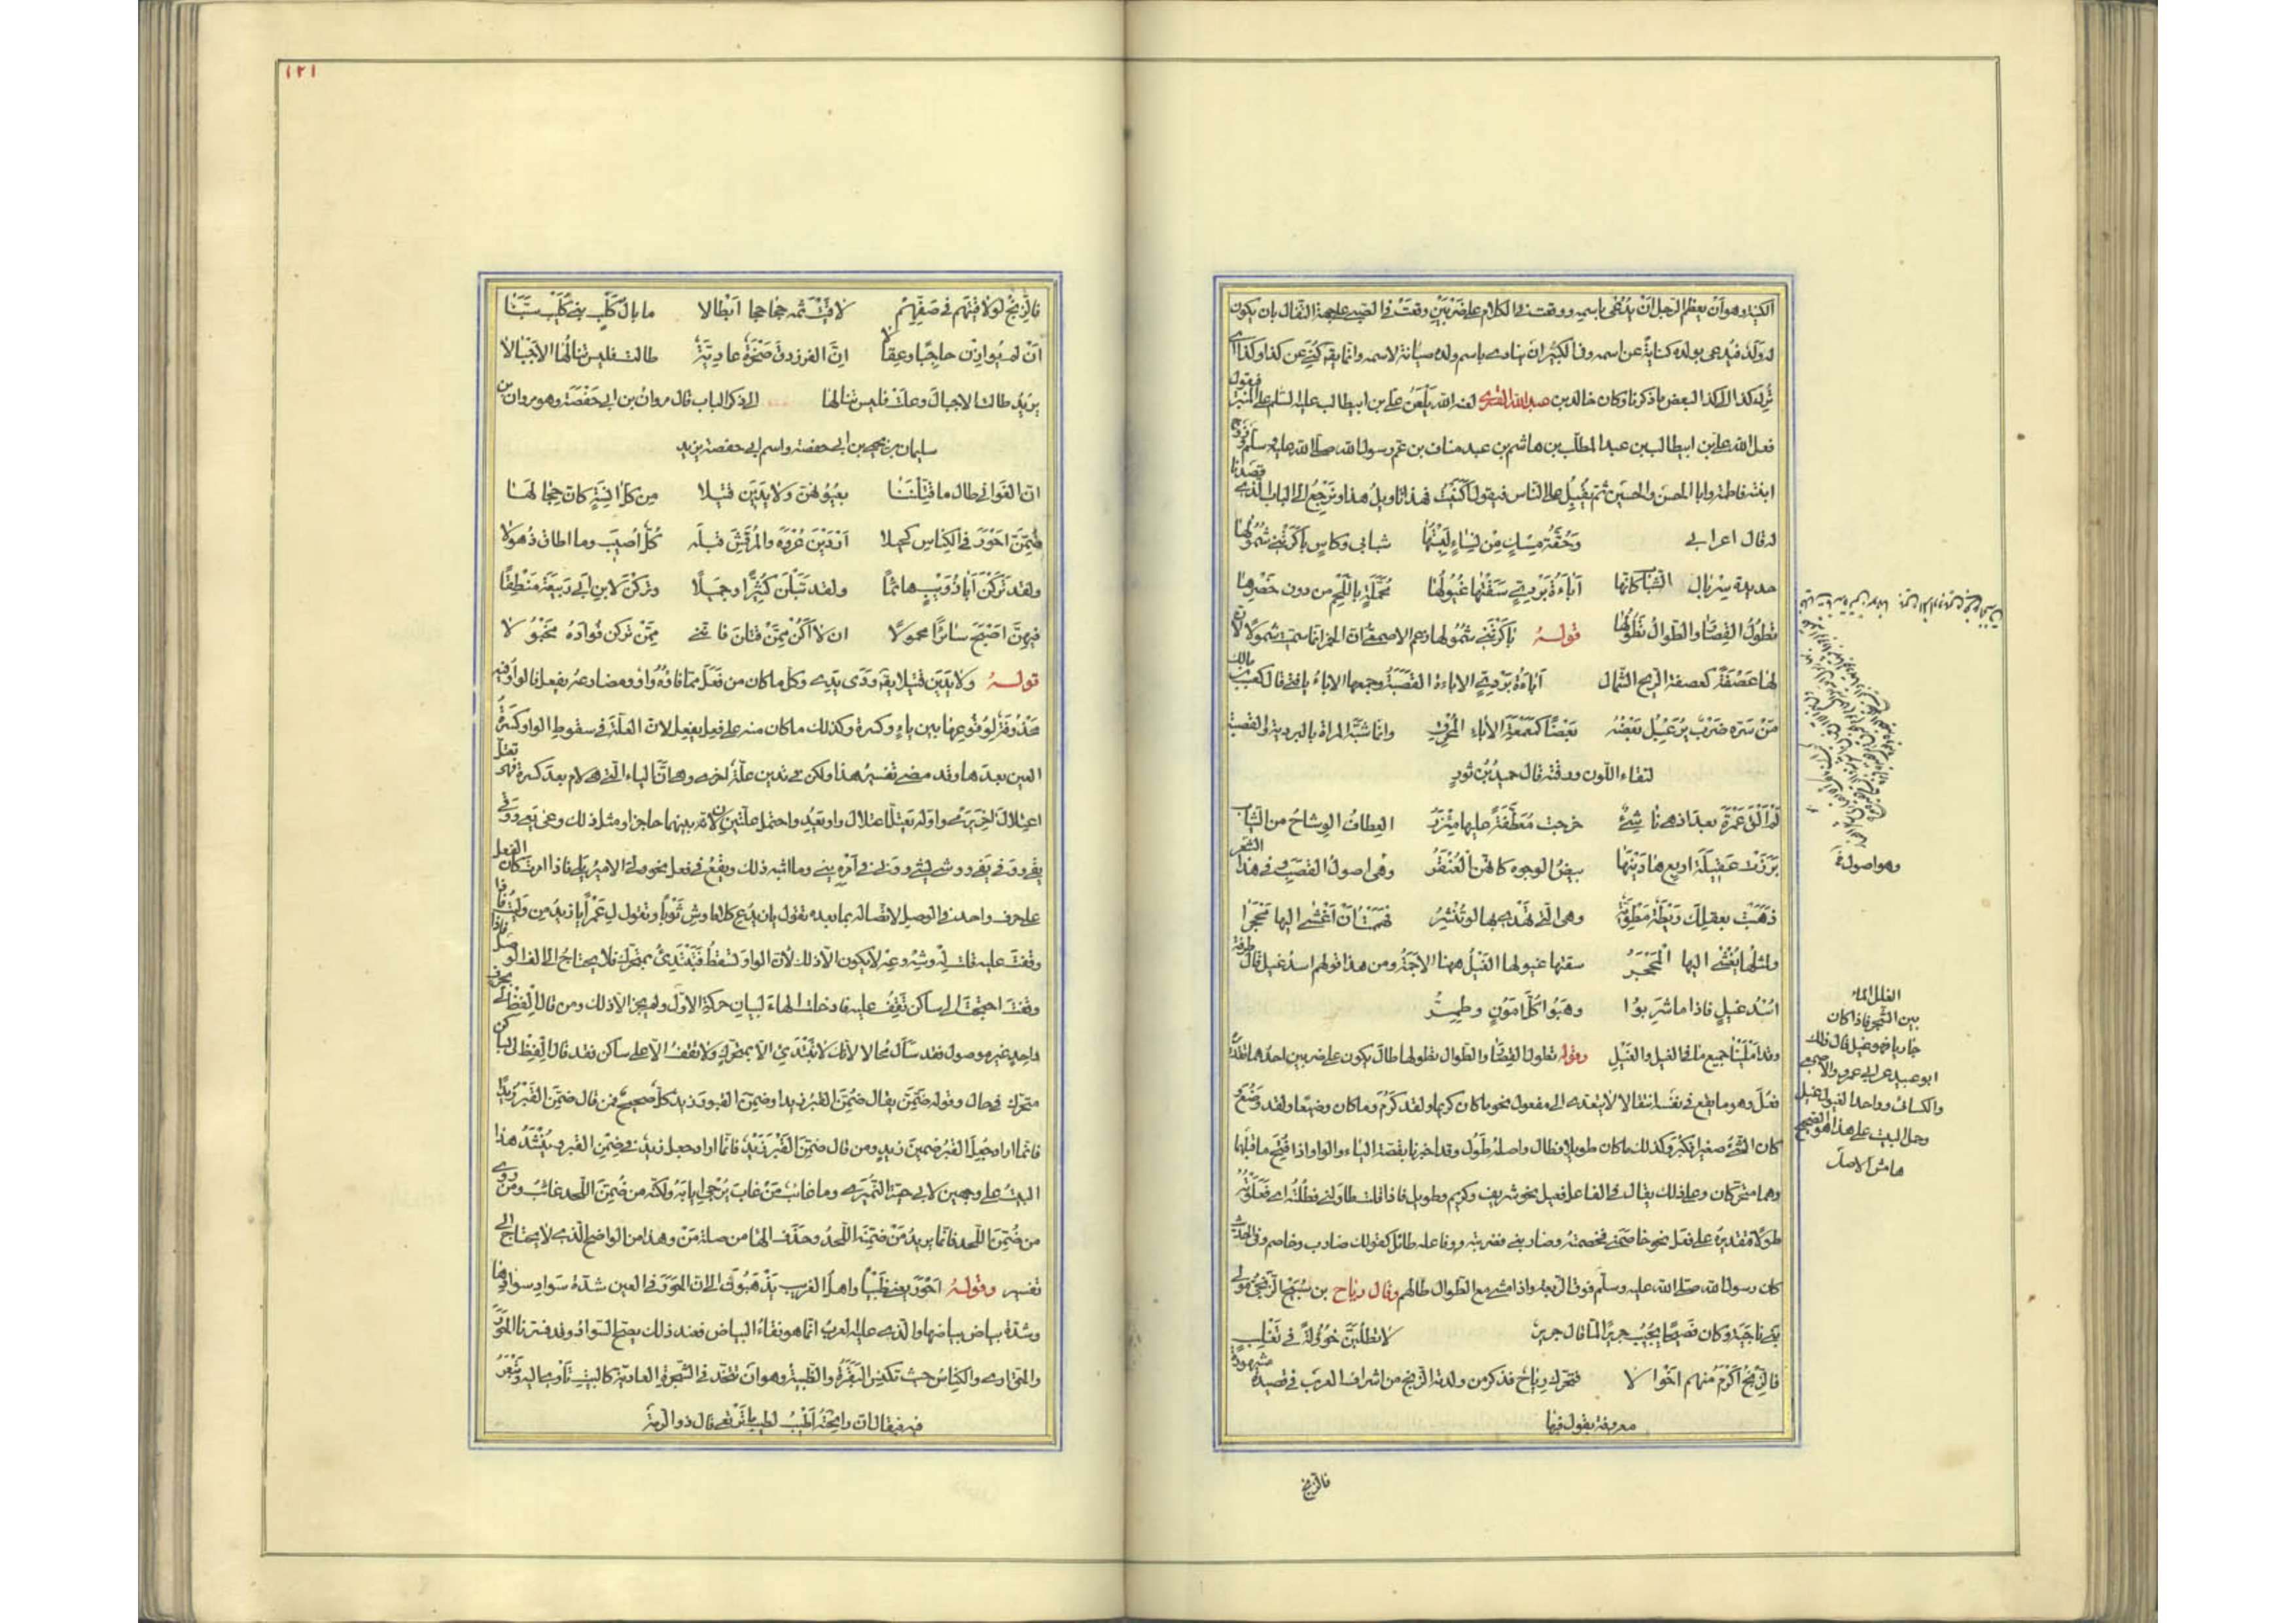 الكنية وهو أن يعظم الرجل أن يدعى باسمه ووقعت في الكلام على ضربين وقعت في الصبي على جهة التفاؤل بان يكون
له ولد فيدعى بولده كناية عن اسمه وفي الكبير ان ينادى باسم ولده صيانة لاسمه وانما يقه كنى عن كذا وكذا اى
ترك كذا الى كذا لبعض ما ذكرنا وكان خالد بن عبد الله القسرى لعنه الله يلعن على بن ابيطالب عليه السلم على المنبر فيقول
فعل الله على بن ابيطالب بن عبد المطلب بن هاشم بن عبد مناف بن عم رسول الله صلى الله عليه وسلم وزوج
ابنته فاطمة وابا الحسن والحسين ثم يقبل على الناس فيقول اكنيت فهذا تاويل هذا ونرجع الى الباب الذى قصدنا
له قال اعرابى
وحقة مسك من نساء لبستها
شبابى وكاس باكرتنى شمولها
جديدة سربال الشباب كانها
اباءة بردى سقتها غيولها
مخملة باللحم من دون خصرها
تطول القصار والطوال تطولها
قوله باكرتنى شمولها زعم الاصمعى ان الخمر انما سميت شمولا لان
لها عصفة كعصفة الريح الشمال
اباءة بردى الاباءة القصبة وجمعها الاباء يا فتى قال كعب بن مالك
من سره ضرب يرعبل بعضه
بعضا كمعمعة الاباء المحرق
وانما شبه المراة بالبردية والقصبة
لنقاء اللون ورقته قال حميد بن ثور
لم الق عمرة بعد اذ هى ناشئ
خرجت معطفة عليها مئزر
العطاف الوشاح من الثياب
برزت عقيلة اربع هادينها
بيض الوجوه كانهن العنقر
وهى اصول القصب فى هذا الشعر
ذهبت بعقلك ريطة مطوية
وهى التى تهدى بها لو تنشر
فهممت ان اغشى اليها محجرا
ولمثلها يغشى اليها المحجر
سقتها غيولها الغيل ههنا الاجمة ومن هذا قولهم اسد غيل قال طرفة
اسد غيل فاذا ما شربوا
وهبوا كل امون وطمر
وقد املينا جميع ما فى الغيل والغيل وقوله تطول القصار والطوال تطولها طال يكون على ضربين احدهما تقديره
فعل وهو ما يقع فى نفسه انتقالا لا يتعدى الى مفعول نحو ما كان كريما ولقد كرم وما كان وضيعا ولقد وضع
كان الشئ صغيرا فكبر وكذلك ما كان طويلا فطال واصله طول وقد اخبرنا بقصة الياء والواو اذا فتح ما قبلهما
وهما متحركان وعلى ذلك يقال فى الفاعل فعيل نحو شريف وكريم وطويل فاذا قلت طاولنى فطلته اى فعلوته
طولا فتقديره على فعل نحو خاصمنى فخصمته وضاربنى فضربته وفاعله طائل كقولك ضارب وخاصم وفى الحديث
كان رسول الله صلى الله عليه وسلم فوق الربعة واذا مشى مع الطوال طالهم وقال رياح بن سنيح الزنجى مولى
بنى ناجية وكان فصيحا يجيب جريرا لما قال جرير
لا تطلبن خؤولة فى تغلب
فالزنج اكرم منهم اخوالا
فتحرك رياح فذكر من ولدته الزنج من اشراف العرب فى قصيدة مشهورة
معروفة يقول فيها
فالزنج
وهو اصول
الغلل الماء
بين الشجر فاذا كان
جاريا فهو غيل قال ذلك
ابو عبيد عن ابى عمرو والاصمعى
والكسائى وواحد الغيول غيل
وحمل البيت على هذا هو الصحيح
هامش الاصل
١٢١
فالزنج لو لاقيتهم فى صفهم
لاقيت ثم جحاجحا ابطالا
ما بال كلب بنى كليب سبنا
ان لم يوازن حاجبا وعقالا
ان الفرزدق صخرة عادية
طالت فليس تنالها الاجبالا
يريد طالت الاجبال وعلت فليس تنالها
الى ذكر الباب قال مروان بن ابى حفصة وهو مروان بن
سليمان بن يحيى بن ابى حفصة واسم ابى حفصة يزيد
ان الغوانى طال ما قتلننا
بعيونهن ولا يدين قتيلا
من كل انسة كان حجالها
ضمن احور فى الكناس كحيلا
اردين عروة والمرقش قبله
كل اصيب وما اطاق ذهولا
ولقد تركن ابا ذؤيب هائما
ولقد تبلن كثيرا وجميلا
وتركن لابن ابى ربيعة منطقا
فيهن اصبح سائرا محمولا
ان لا اكن ممن قتلن فاننى
ممن تركن فؤاده مخبولا
قوله ولا يدين قتيلا يقه ودى يدى وكل ما كان من فعل مما فاؤه واو ومضارعه يفعل فالواو فيه
محذوفة لوقوعها بين ياء وكسرة وكذلك ما كان منه على فعل يفعل لان العلة فى سقوط الواو كسرة
العين بعدها وقد مضى تفسير هذا ولكن فى يدين علة اخرى وهى ان الياء التى هى لام بعد كسرة فهى تعتل
اعتلال اخر يرمى واوله يعتل اعتلال واو يعد واحتمل علتين لان بينهما حاجزا ومثل ذلك وعى يعى ووقى
يقى ووفى يفى ووشى يشى وونى ينى فى امره ينى وما اشبه ذلك ويقع فى فعل نحو ولى الامير يلى فاذا امرت كان الفعل
على حرف واحد فى الوصل لاتصاله بما بعده تقول يا زيد ع كلاما وش ثوبا وتقول ل عمرا يا زيد من وليت فاذا
وقفت عليه قلت له وشه وعه لا يكون الا ذلك لان الواو تسقط فتبتدئ بمتحرك فلا يحتاج الى الف الوصل فاذا
وقفت احتجت الى ساكن تقف عليه فادخلت الهاء لبيان حركة الاول ولم يجز الا ذلك ومن قال الفظ لى بحرف
واحد غير موصول فقد سال محالا لانك لا تبتدئ الا بمتحرك ولا تقف الا على ساكن فقد قال الفظ لى بساكن
متحرك فى حال وقوله ضمن يقال ضمن القبر زيدا وضمن القبر زيد كل صحيح فمن قال ضمن القبر زيدا
فانما اراد جعل القبر ضمين زيد ومن قال ضمن القبر زيد فانما اراد جعل زيد فى ضمن القبر وينشد هذا
البيت على وجهين لابى حية النميرى وما غائب من غاب يرجى ايابه ولكنه من ضمن اللحد غائب ومن روى
من ضمن اللحد فانما يريد من ضمنه اللحد وحذف الهاء من صلة من وهذا من الواضح الذى لا يحتاج الى
تفسير وقوله احور يعنى ظبيا واهل الغريب يذهبون الى ان الحور فى العين شدة سواد سوادها
وشدة بياض بياضها والذى عليه العرب انما هو نقاء البياض فعند ذلك يتضح السواد وقد فسرنا الحور
والحوارى والكناس حيث تكنس البقرة والظبية وهو ان تتخذ فى الشجرة العادية كالبيت تاوى اليه وتبعر
فيه فيقال ان رائحته اطيب لطيب ما ترتعى قال ذو الرمة